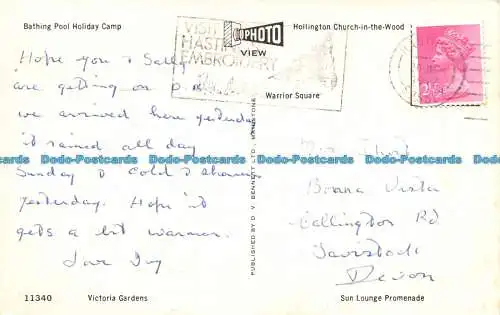 Bathing Pool Holiday Camp
Hollington Church-in-the-Wood
VISIT
HASTINGS
EMBROIDERY
PHOTO
VIEW
Warrior Square
2½P
Hope you & Sally
are getting on O.K.
we arrived here yesterday
it rained all day
Sunday & Cold & showery
yesterday. Hope it
gets a bit warmer.
Love Ivy
PUBLISHED BY D. V. BENNETT LTD. MAIDSTONE
Bonna Vista
Callington Rd
Tavistock
Devon
Dodo-Postcards Dodo-Postcards Dodo-Postcards Dodo-Postcards
11340
Victoria Gardens
Sun Lounge Promenade